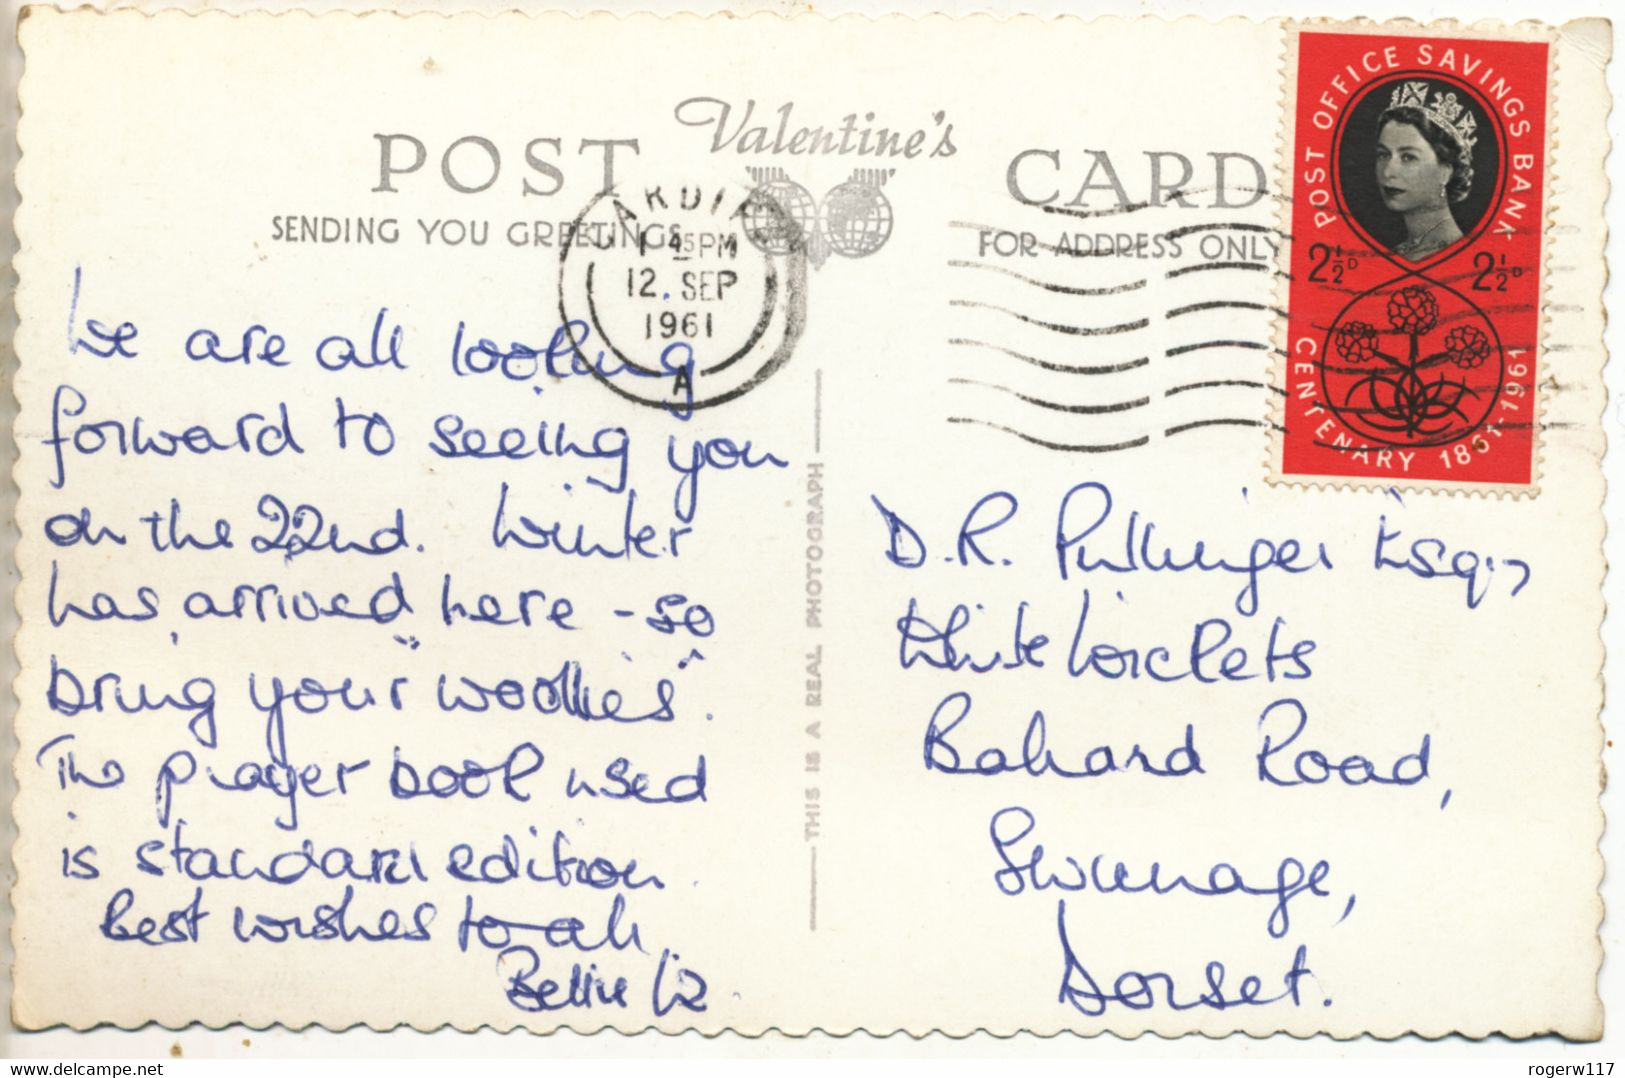 POST Valentine's CARD
SENDING YOU GREETINGS
FOR ADDRESS ONLY
CARDIFF
1 45 PM
12. SEP
1961
A
POST OFFICE SAVINGS BANK
2½D 2½D
CENTENARY 1861-1961
We are all looking
forward to seeing you
on the 22nd. Winter
has arrived here - so
bring your "woollies".
The prayer book used
is standard edition.
Best wishes to all.
THIS IS A REAL PHOTOGRAPH
D. R. Pullinger Esq.,
White Wickets
Road,
Swanage,
Dorset.
delcampe.net
rogerw117